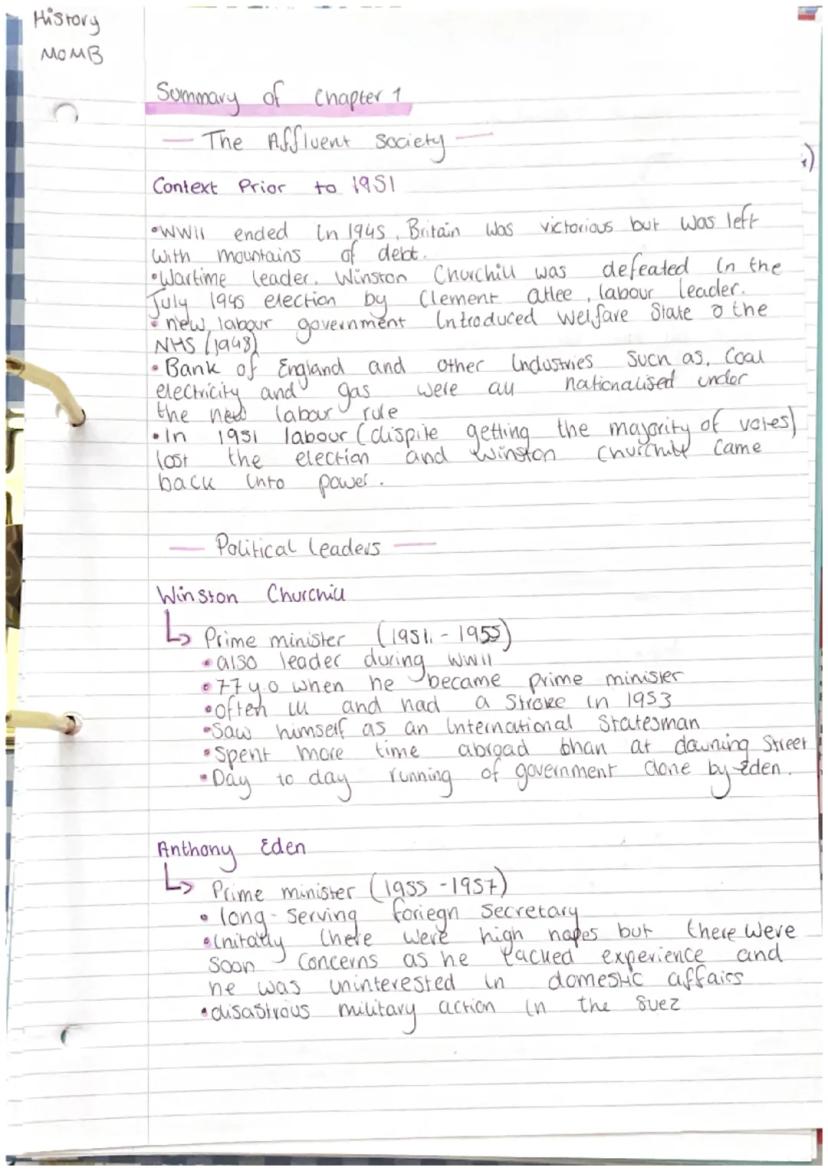 History
MOMB
Summary of Chapter 1
The Affluent Society
Context Prior to 1951
•WWII ended in 1945. Britain was victorious but was left
with mountains of debt.
•Wartime leader. Winston Churchill was defeated in the
July 1945 election by Clement atlee, labour leader.
• new labour government introduced Welfare State & the
NHS (1948)
• Bank of England and other industries such as, Coal
electricity and gas were all nationalised under
the new labour rule
•In 1951 labour (dispite getting the majority of votes)
lost the election and Winston Churchill came
back into power.
Political leaders
Winston Churchill
↳ Prime minister (1951. - 1955)
• also leader during WWII
• 77 yo when he became prime minister
•often ill and had a Stroke in 1953
•Saw himself as an International Statesman
•Spent more time abroad than at downing Street
•Day to day running of government done by Eden.
Anthony Eden
↳ Prime minister (1955 - 1957)
• long-serving foriegn Secretary
•initally there were high hopes but there were
soon concerns as he lacked experience and
he was uninterested in domestic affairs
•disastrous military action in the Suez